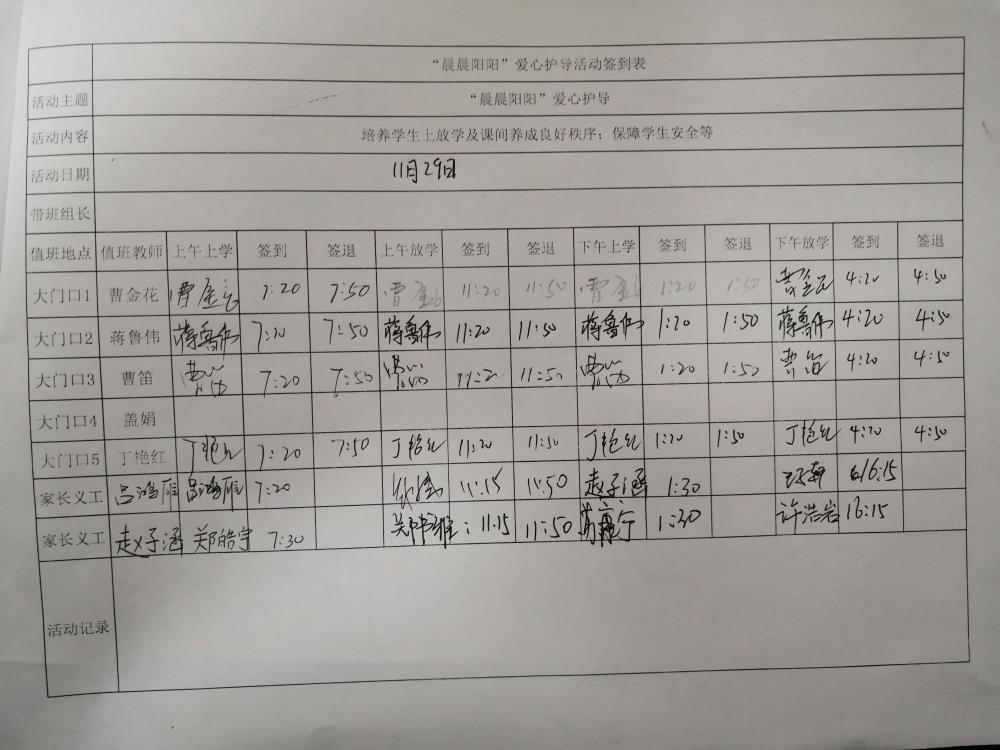 “晨晨阳阳”爱心护导活动签到表
活动主题 “晨晨阳阳”爱心护导
活动内容 培养学生上放学及课间养成良好秩序；保障学生安全等
活动日期 11月29日
带班组长
值班地点 值班教师 上午上学 签到 签退 上午放学 签到 签退 下午上学 签到 签退 下午放学 签到 签退
大门口1 曹金花 曹金花 7:20 7:50 曹金花 11:20 11:50 曹金花 1:20 1:50 曹金花 4:20 4:50
大门口2 蒋鲁伟 蒋鲁伟 7:20 7:50 蒋鲁伟 11:20 11:50 蒋鲁伟 1:20 1:50 蒋鲁伟 4:20 4:50
大门口3 曹笛 曹笛 7:20 7:50 曹笛 11:20 11:50 曹笛 1:20 1:50 曹笛 4:20 4:50
大门口4 盖娟
大门口5 丁艳红 丁艳红 7:20 7:50 丁艳红 11:20 11:50 丁艳红 1:20 1:50 丁艳红 4:20 4:50
家长义工 7:20 11:15 11:50 赵子涵 1:30 16:15
家长义工 赵子涵 郑皓宇 7:30 11:15 11:50 1:30 许浩岩 16:15
活动记录